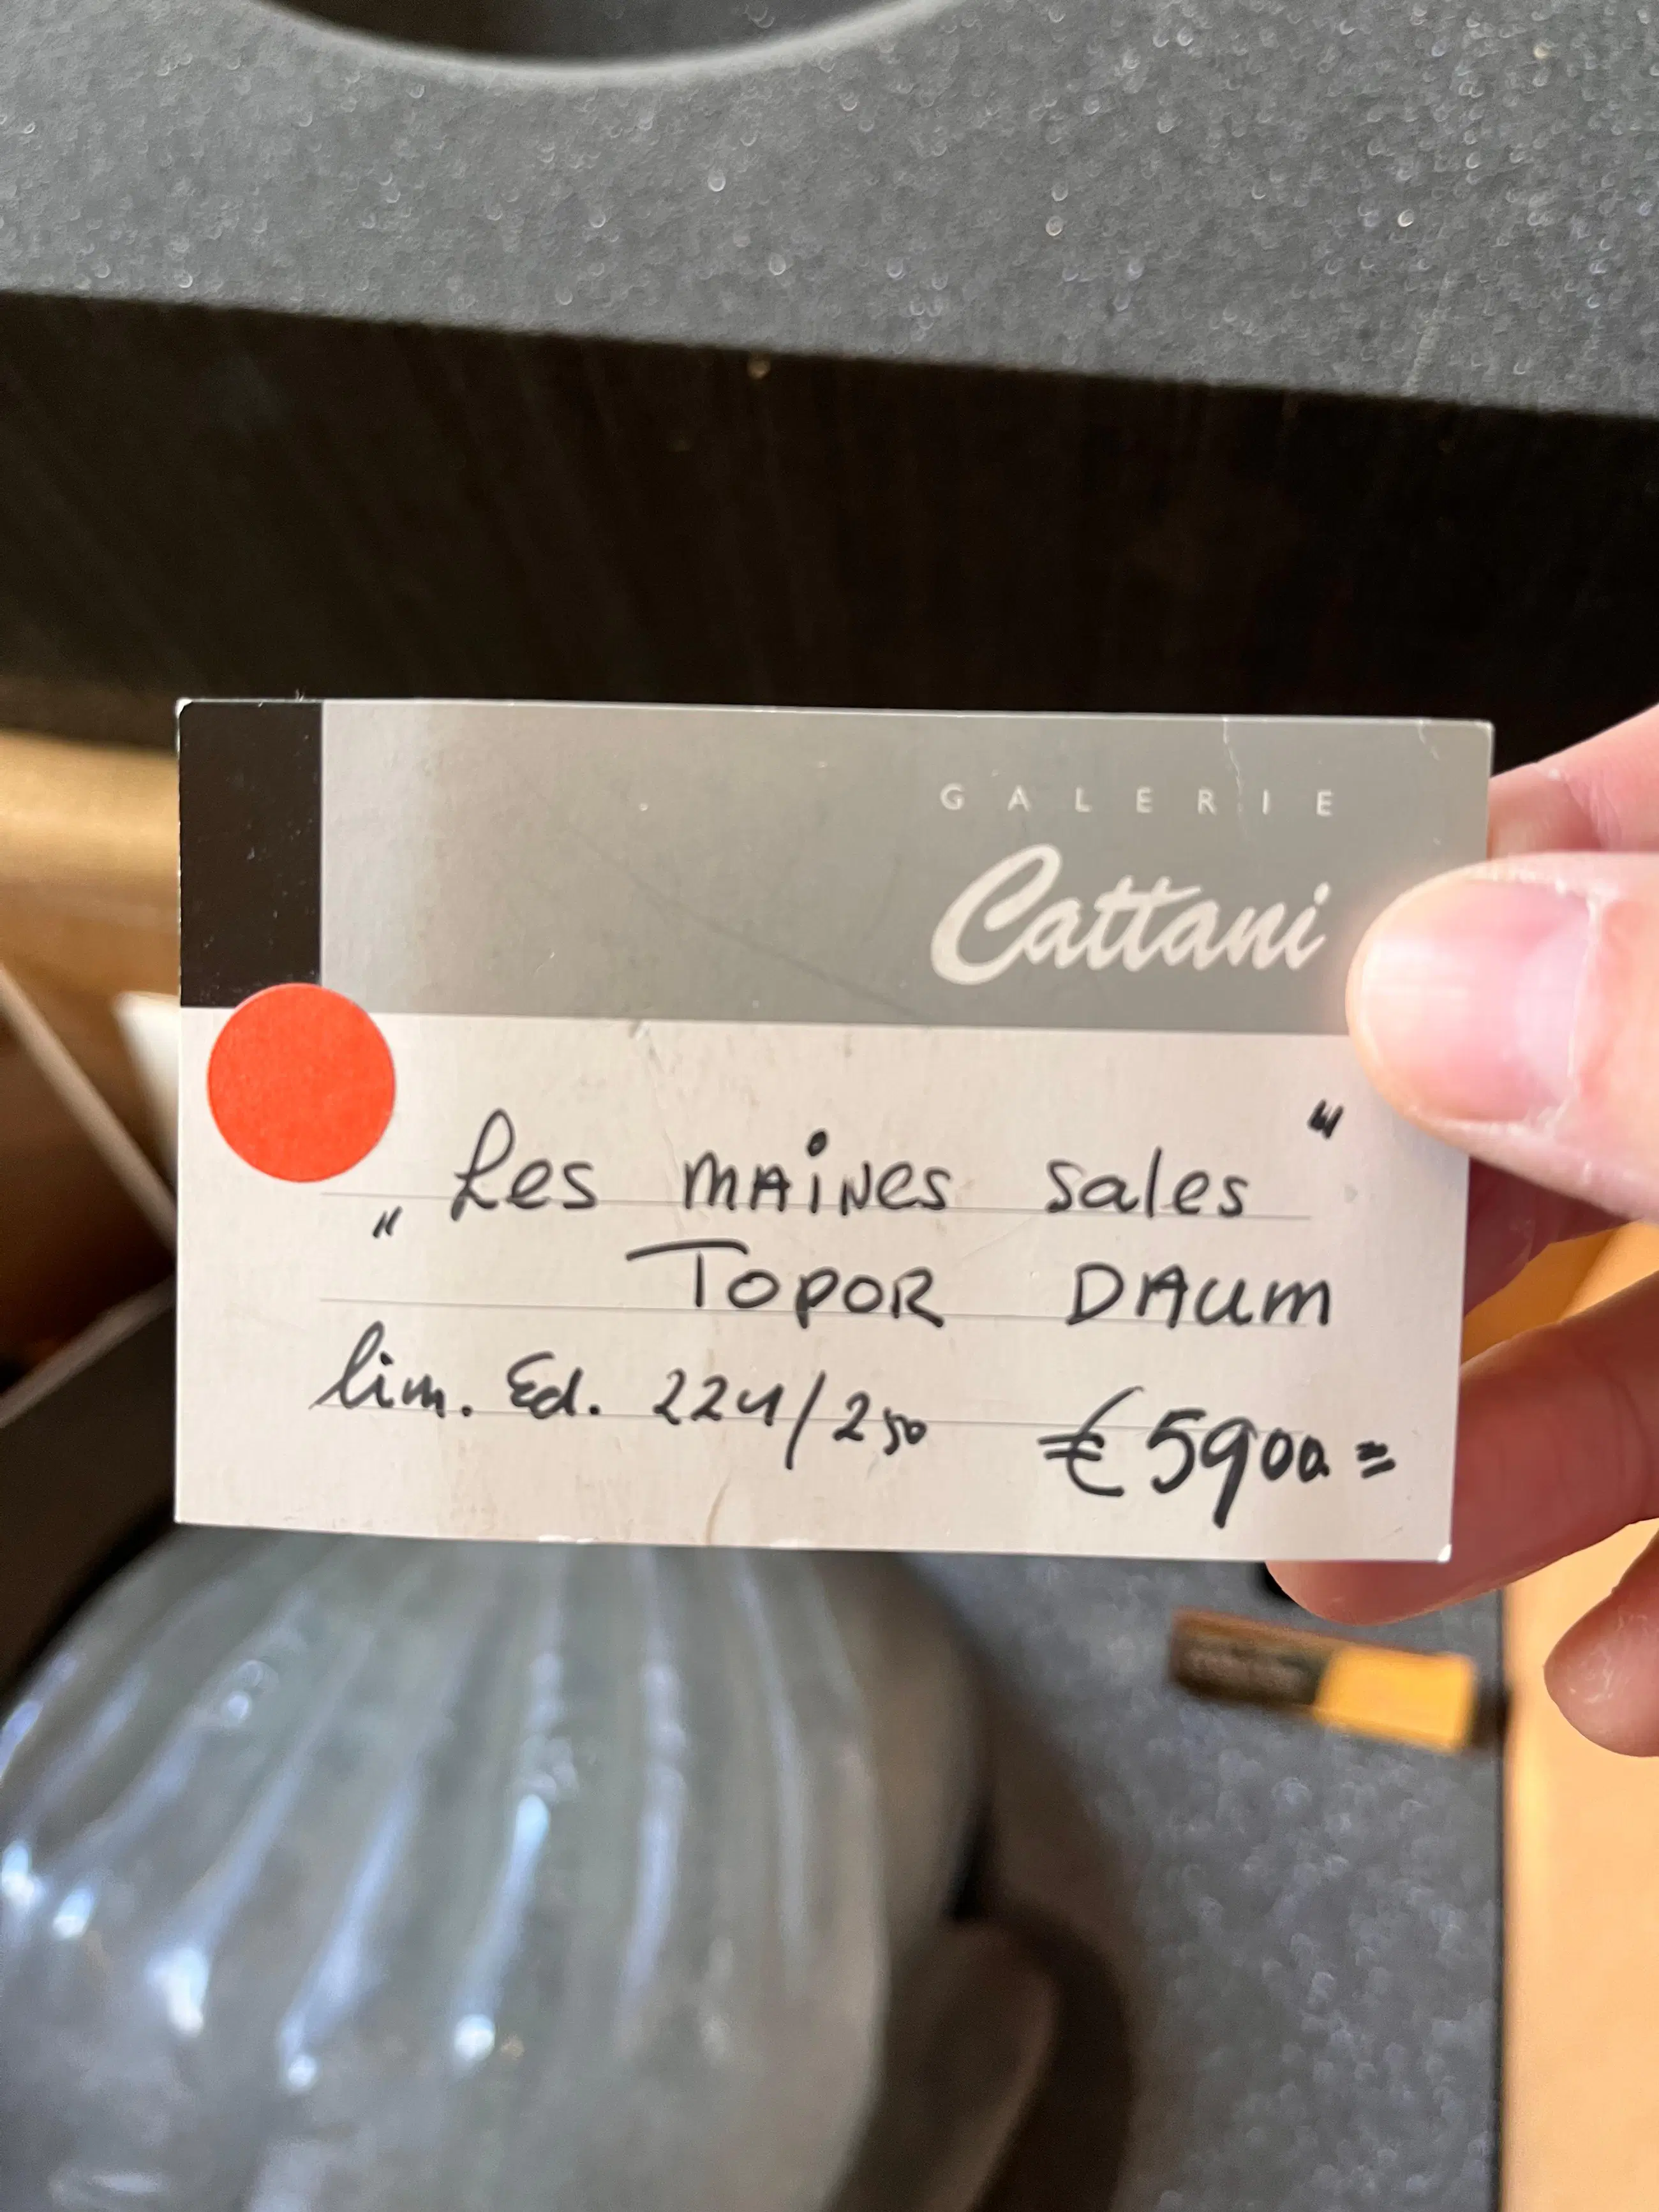 GALERIE
Cattani
„Les MAiNes sales"
TOPOR DAUM
lim. Ed. 224/250 €5900=